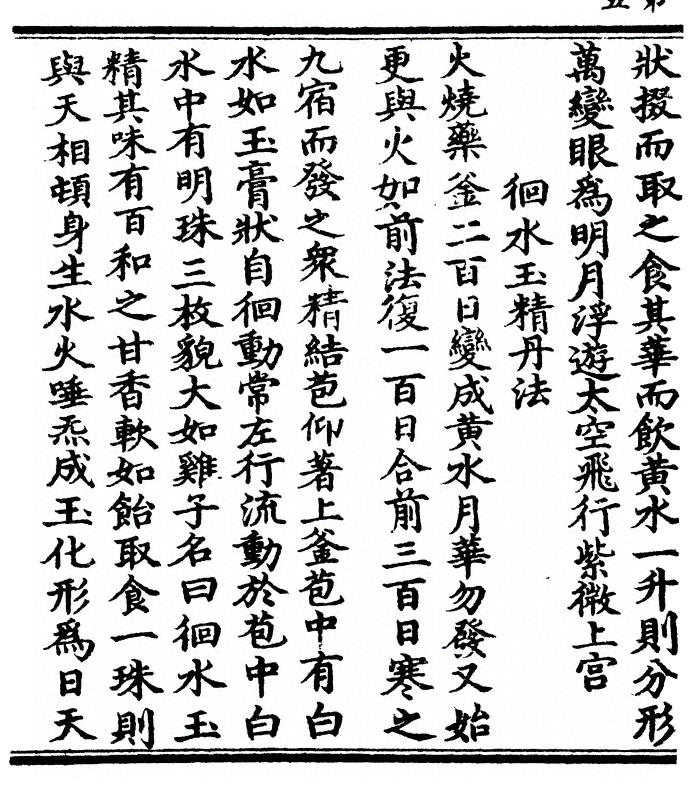 狀掇而取之食其華而飲黃水一升則分形
萬變眼爲明月浮遊太空飛行紫微上宮
徊水玉精丹法
火燒藥釜二百日變成黃水月華勿發又始
更與火如前法復一百日合前三百日寒之
九宿而發之衆精結苞仰著上釜苞中有白
水如玉膏狀自徊動常左行流動於苞中白
水中有明珠三枚貌大如雞子名曰徊水玉
精其味有百和之甘香軟如飴取食一珠則
與天相頃身生水火唾炁成玉化形爲日天